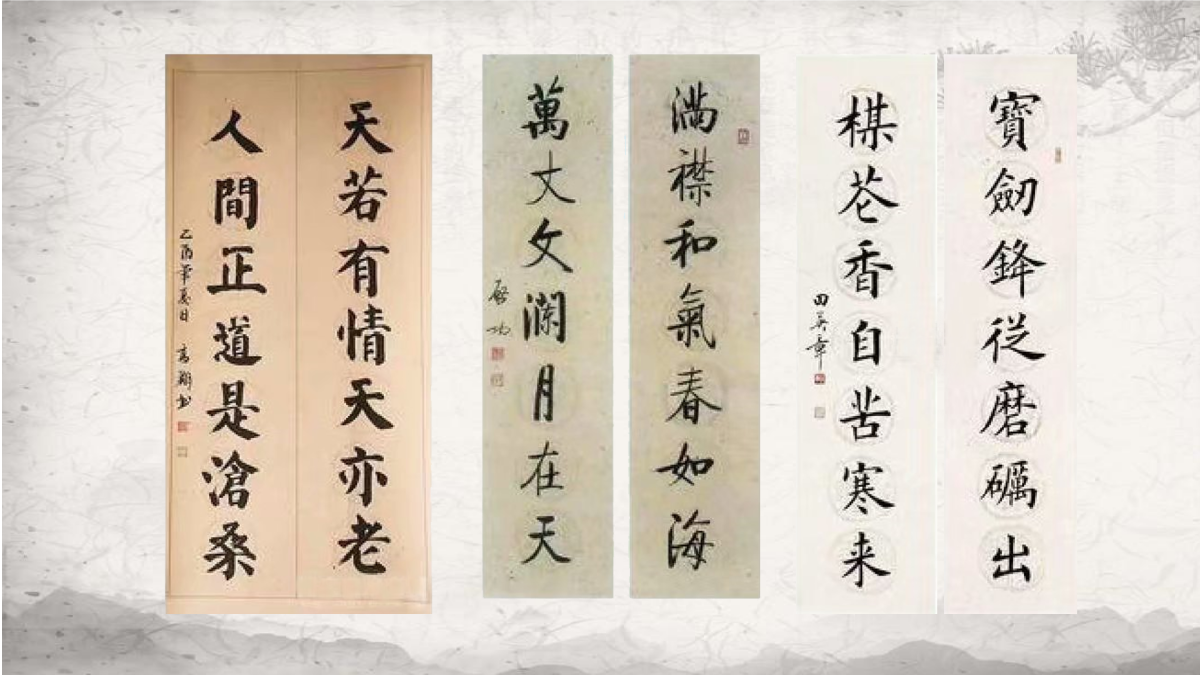 寶劒鋒従磨礪出
楳花香自苦寒来
田英章
滿襟和氣春如海
萬丈文瀾月在天
啟功
天若有情天亦老
人間正道是滄桑
乙酉年夏日